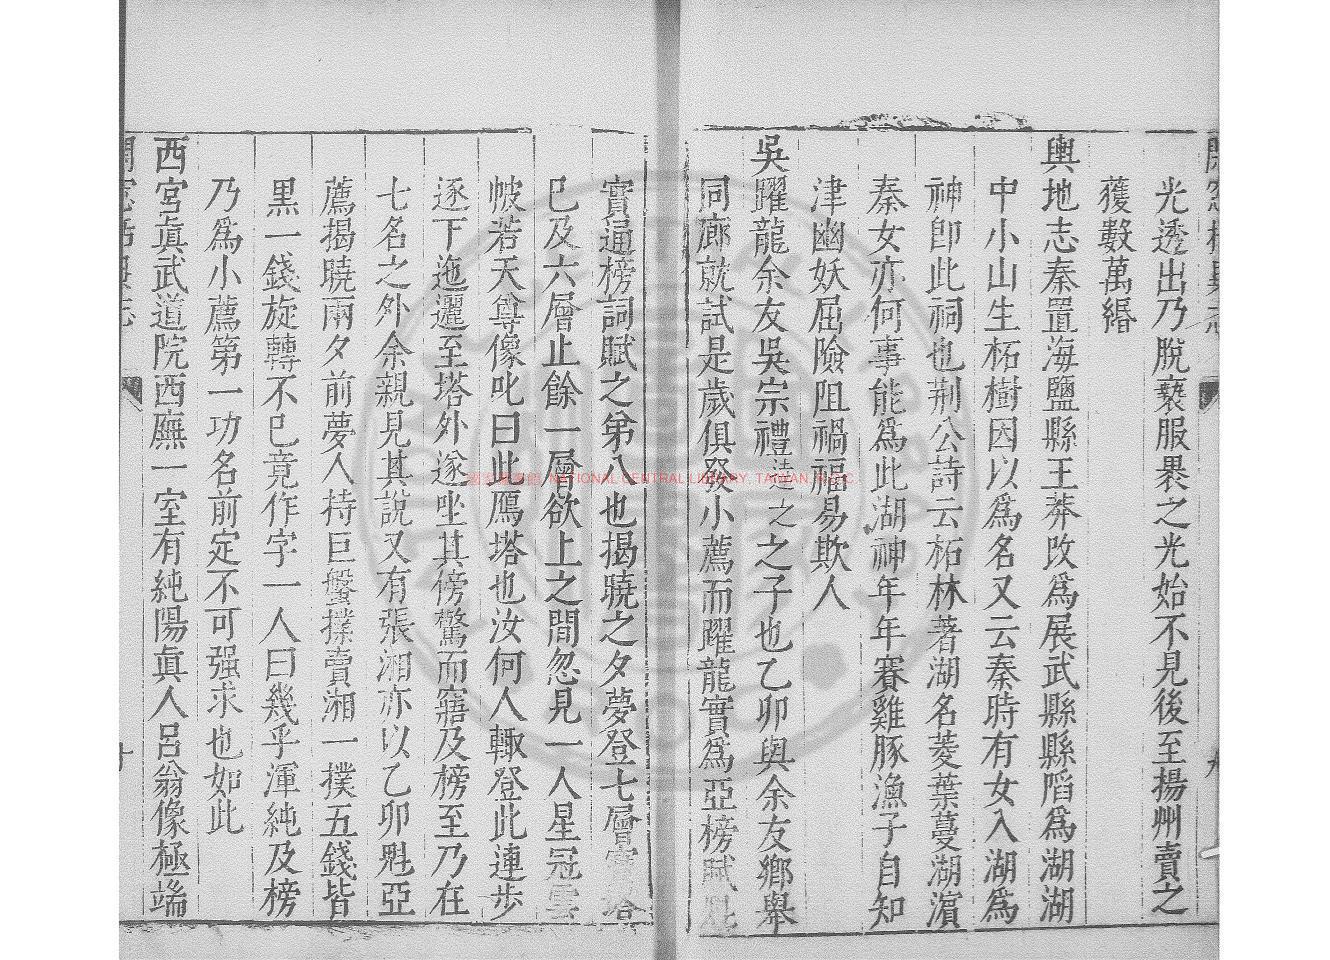 光透出乃脫褻服裹之光始不見後至揚州賣之
獲數萬緡
輿地志秦置海鹽縣王莽改爲展武縣縣陷爲湖湖
中小山生柘樹因以爲名又云秦時有女入湖爲
神卽此祠也荆公詩云柘林著湖名菱葉蔓湖濵
秦女亦何事能爲此湖神年年賽雞豚漁子自知
津幽妖屈險阻禍福易欺人
吳躍龍余友吳宗禮逵之之子也乙卯與余友鄉舉
同廊就試是歲俱發小薦而躍龍實爲亞榜賦
實通榜詞賦之弟八也揭曉之夕夢登七層塔
已及六層止餘一層欲上之間忽見一人星冠雲
帔若天尊像叱曰此鴈塔也汝何人輙登此連步
逐下迤邐至塔外遂坐其傍驚而寤及榜至乃在
七名之外余親見其說又有張湘亦以乙卯魁亞
薦揭曉兩夕前夢人持巨盤撲賣湘一撲五錢皆
黑一錢旋轉不已竟作字一人曰幾乎渾純及榜
乃爲小薦第一功名前定不可强求也如此
西宮眞武道院西廡一室有純陽眞人呂翁像極端
國家圖書館 NATIONAL CENTRAL LIBRARY, TAIWAN, R.O.C.